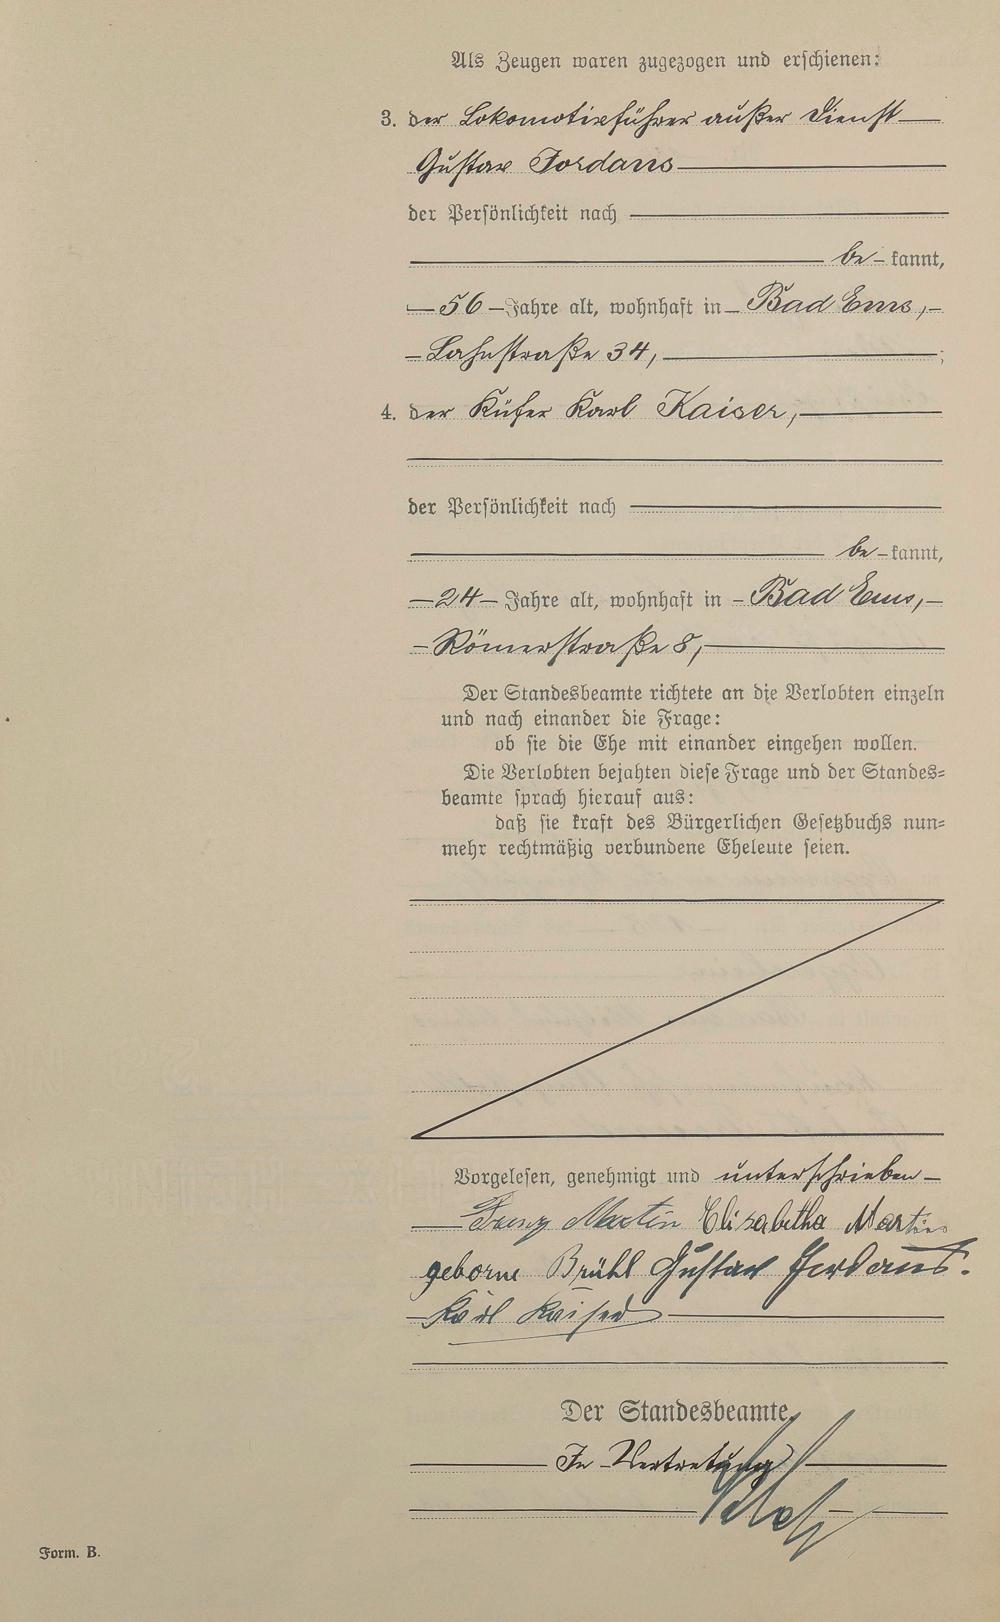 Als Zeugen waren zugezogen und erschienen:
3. der Lokomotivführer außer Dienst
Gustav Jordans
der Persönlichkeit nach
be-kannt,
56 Jahre alt, wohnhaft in Bad Ems,
Lahnstraße 34, ;
4. der Küfer Karl Kaiser,
der Persönlichkeit nach
be-kannt,
24 Jahre alt, wohnhaft in Bad Ems,
Römerstraße 8,
Der Standesbeamte richtete an die Verlobten einzeln
und nach einander die Frage:
ob sie die Ehe mit einander eingehen wollen.
Die Verlobten bejahten diese Frage und der Standes-
beamte sprach hierauf aus:
daß sie kraft des Bürgerlichen Gesetzbuchs nun-
mehr rechtmäßig verbundene Eheleute seien.
Vorgelesen, genehmigt und unterschrieben
Franz Martin Elisabetha Martin
geborne Brühl Gustav Jordans.
Karl Kaiser
Der Standesbeamte.
In Vertretung
Form. B.